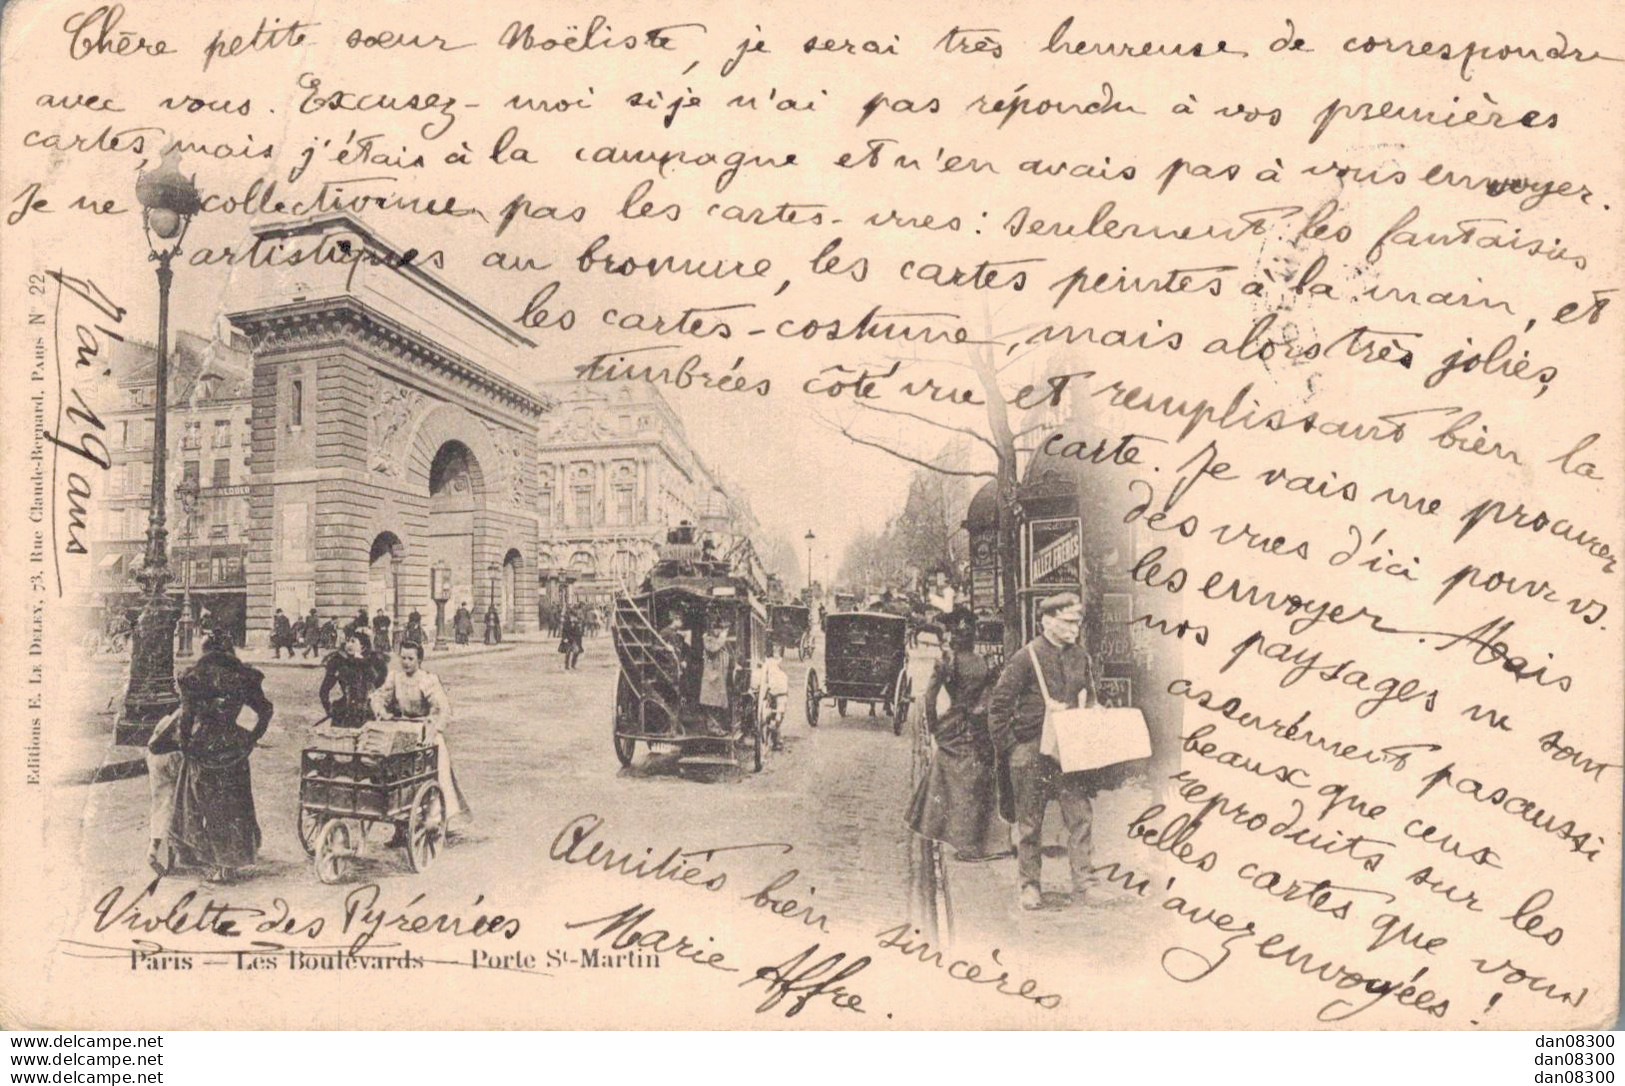 Chère petite sœur Noëliste, je serai très heureuse de correspondre
avec vous. Excusez-moi si je n'ai pas répondu à vos premières
cartes, mais j'étais à la campagne et n'en avais pas à vous envoyer.
Je ne collectionne pas les cartes-vues: seulement les fantaisies
artistiques au bromure, les cartes peintes à la main, et
les cartes-costume, mais alors très jolies,
timbrées côté vue et remplissant bien la
carte. Je vais me procurer
des vues d'ici pour vs.
les envoyer. Mais
nos paysages ne sont
assurément pas aussi
beaux que ceux
reproduits sur les
belles cartes que vous
m'avez envoyées!
Amitiés bien sincères
Marie Affre.
Violette des Pyrénées
J'ai 19 ans
Editions E. Le Deley, 73, Rue Claude-Bernard, Paris N° 22
Paris — Les Boulevards — Porte St-Martin
www.delcampe.net
www.delcampe.net
www.delcampe.net
dan08300
dan08300
dan08300